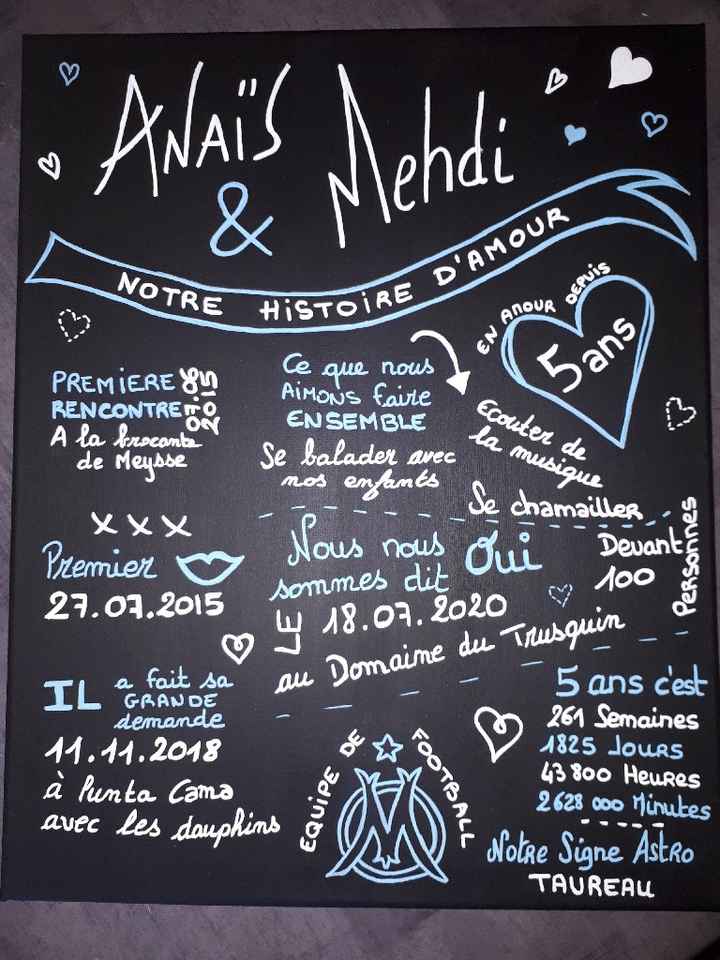 ANAÏS
&
Mehdi
NOTRE HISTOIRE D'AMOUR
EN AMOUR DEPUIS
5 ans
PREMIERE
RENCONTRE
07.06
2015
A la brocante
de Meysse
Ce que nous
AIMONS faire
ENSEMBLE
Se balader avec
nos enfants
Ecouter de
la musique
Se chamailler
XXX
Premier
27.07.2015
Nous nous
sommes dit
Oui
LE 18.07.2020
au Domaine du Trusquin
Devant
100
Personnes
IL a fait sa
GRANDE
demande
11.11.2018
à Punta Cana
avec les dauphins
EQUIPE DE FOOTBALL
M
5 ans c'est
261 Semaines
1825 Jours
43 800 Heures
2 628 000 Minutes
Notre Signe Astro
TAUREAU